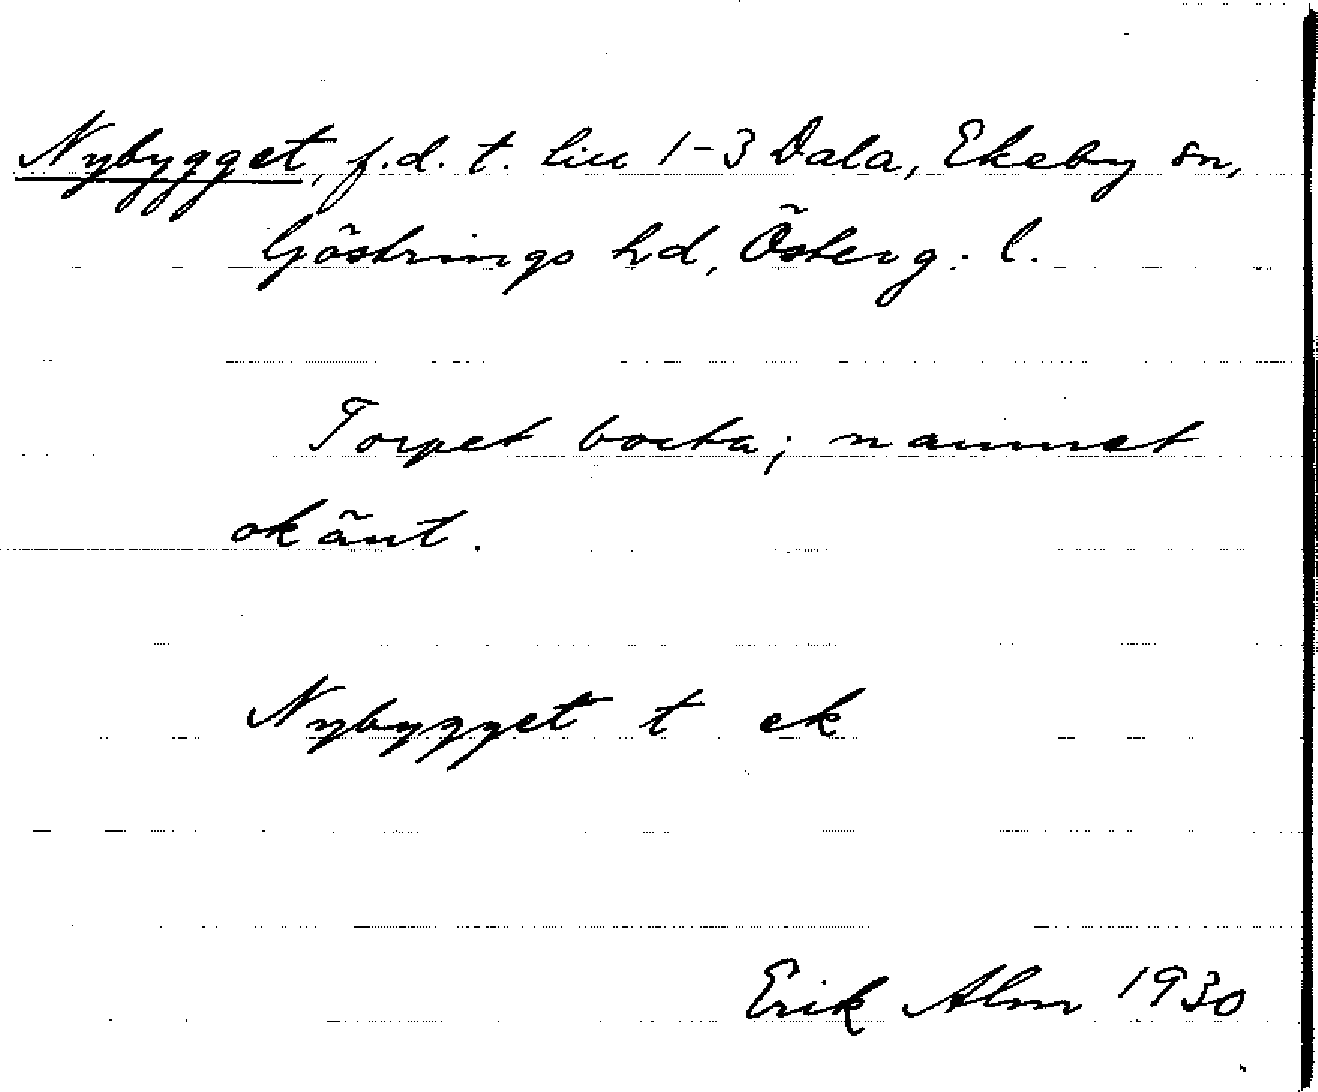 Nybygget, f.d. t. lill 1-3 Dala, Ekeby sn,
Göstrings hd, Österg. l.
Torpet borta; namnet
okänt.
Nybygget t ek
Erik Alm 1930